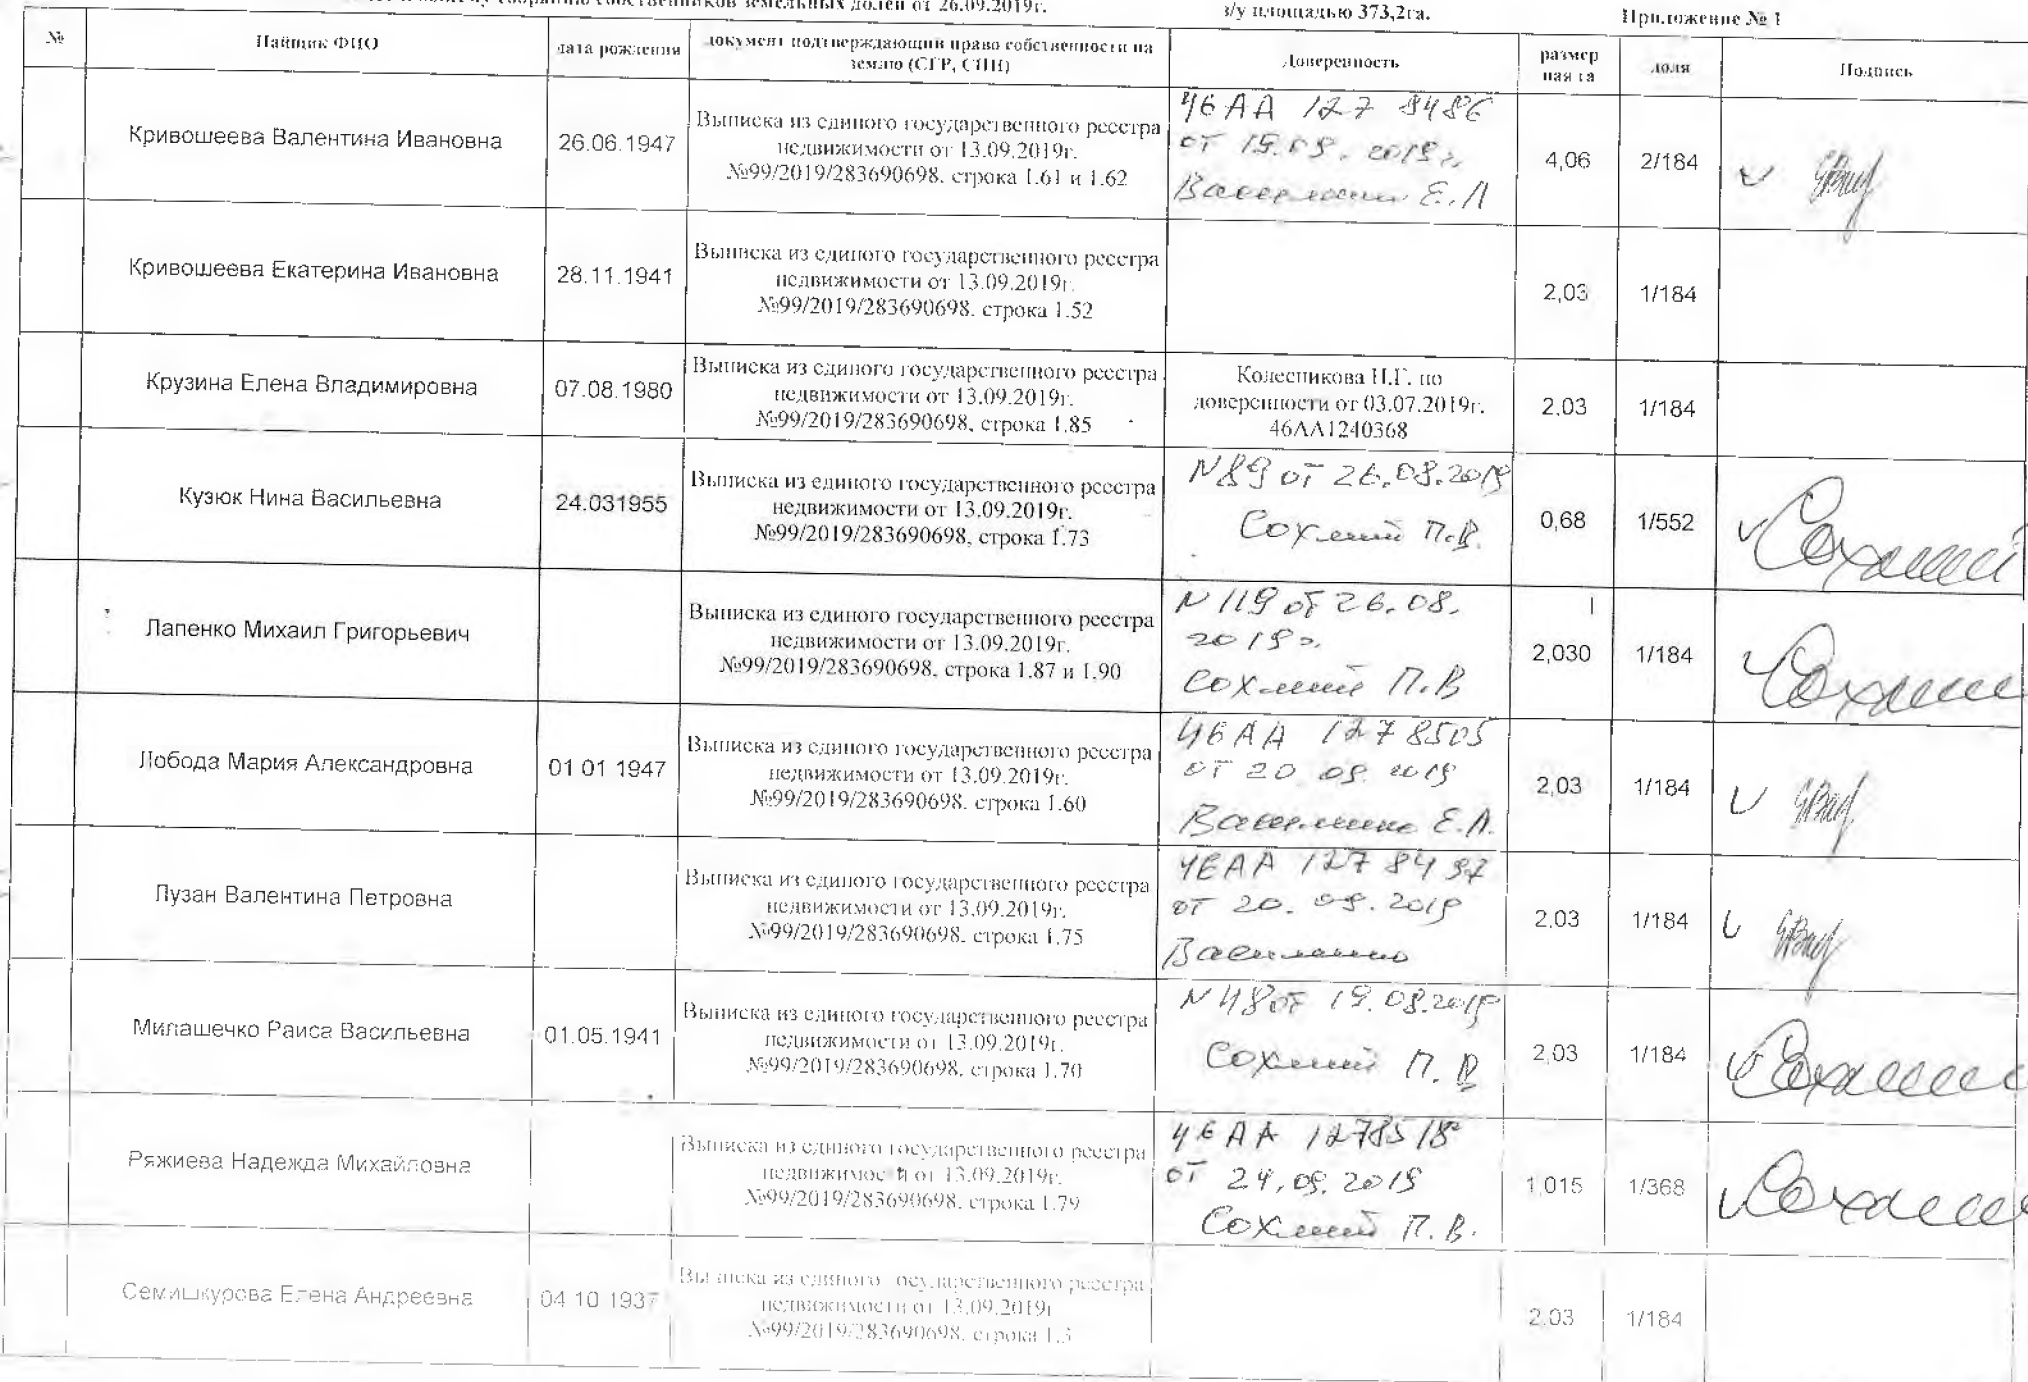 собственников земельных долей от 26.09.2019г.
з/у площадью 373,2га.
Приложение № 1
№
Пайщик ФИО
дата рождения
документ подтверждающий право собственности на
землю (СГР, СПИ)
Доверенность
размер
пая га
доля
Подпись
Кривошеева Валентина Ивановна
26.06.1947
Выписка из единого государственного реестра
недвижимости от 13.09.2019г.
№99/2019/283690698. строка 1.61 и 1.62
46 АА 127 8486
от 19.09. 2019г.
Е.А
4,06
2/184
Кривошеева Екатерина Ивановна
28.11.1941
Выписка из единого государственного реестра
недвижимости от 13.09.2019г.
№99/2019/283690698. строка 1.52
2,03
1/184
Крузина Елена Владимировна
07.08.1980
Выписка из единого государственного реестра
недвижимости от 13.09.2019г.
№99/2019/283690698, строка 1.85
Колесникова Н.Г. по
доверенности от 03.07.2019г.
46АА1240368
2,03
1/184
Кузюк Нина Васильевна
24.031955
Выписка из единого государственного реестра
недвижимости от 13.09.2019г.
№99/2019/283690698, строка 1.73
N89 от 26.08.2019
Сохмий П.В.
0,68
1/552
Лапенко Михаил Григорьевич
Выписка из единого государственного реестра
недвижимости от 13.09.2019г.
№99/2019/283690698, строка 1.87 и 1.90
N 119 от 26.08.
2019г.
Сохмий П.В
2,030
1/184
Лобода Мария Александровна
01 01 1947
Выписка из единого государственного реестра
недвижимости от 13.09.2019г.
№99/2019/283690698. строка 1.60
46 АА 127 8505
от 20 09. 2019
Е.А.
2,03
1/184
Лузан Валентина Петровна
Выписка из единого государственного реестра
недвижимости от 13.09.2019г.
№99/2019/283690698. строка 1.75
46АА 127 84 97
от 20. 09. 2019
2,03
1/184
Милашечко Раиса Васильевна
01.05.1941
Выписка из единого государственного реестра
недвижимости от 13.09.2019г.
№99/2019/283690698. строка 1.70
N 48 от 19.08.2019
Сохмий П.В
2,03
1/184
Ряжиева Надежда Михайловна
Выписка из единого государственного реестра
недвижимости от 13.09.2019г.
№99/2019/283690698. строка 1.79
46 АА 1278518
от 24.09.2019
Сохмий П.В.
1,015
1/368
Семишкурова Елена Андреевна
04 10 1937
Выписка из единого государственного реестра
недвижимости от 13.09.2019г
№99/2019/283690698. строка
2,03
1/184